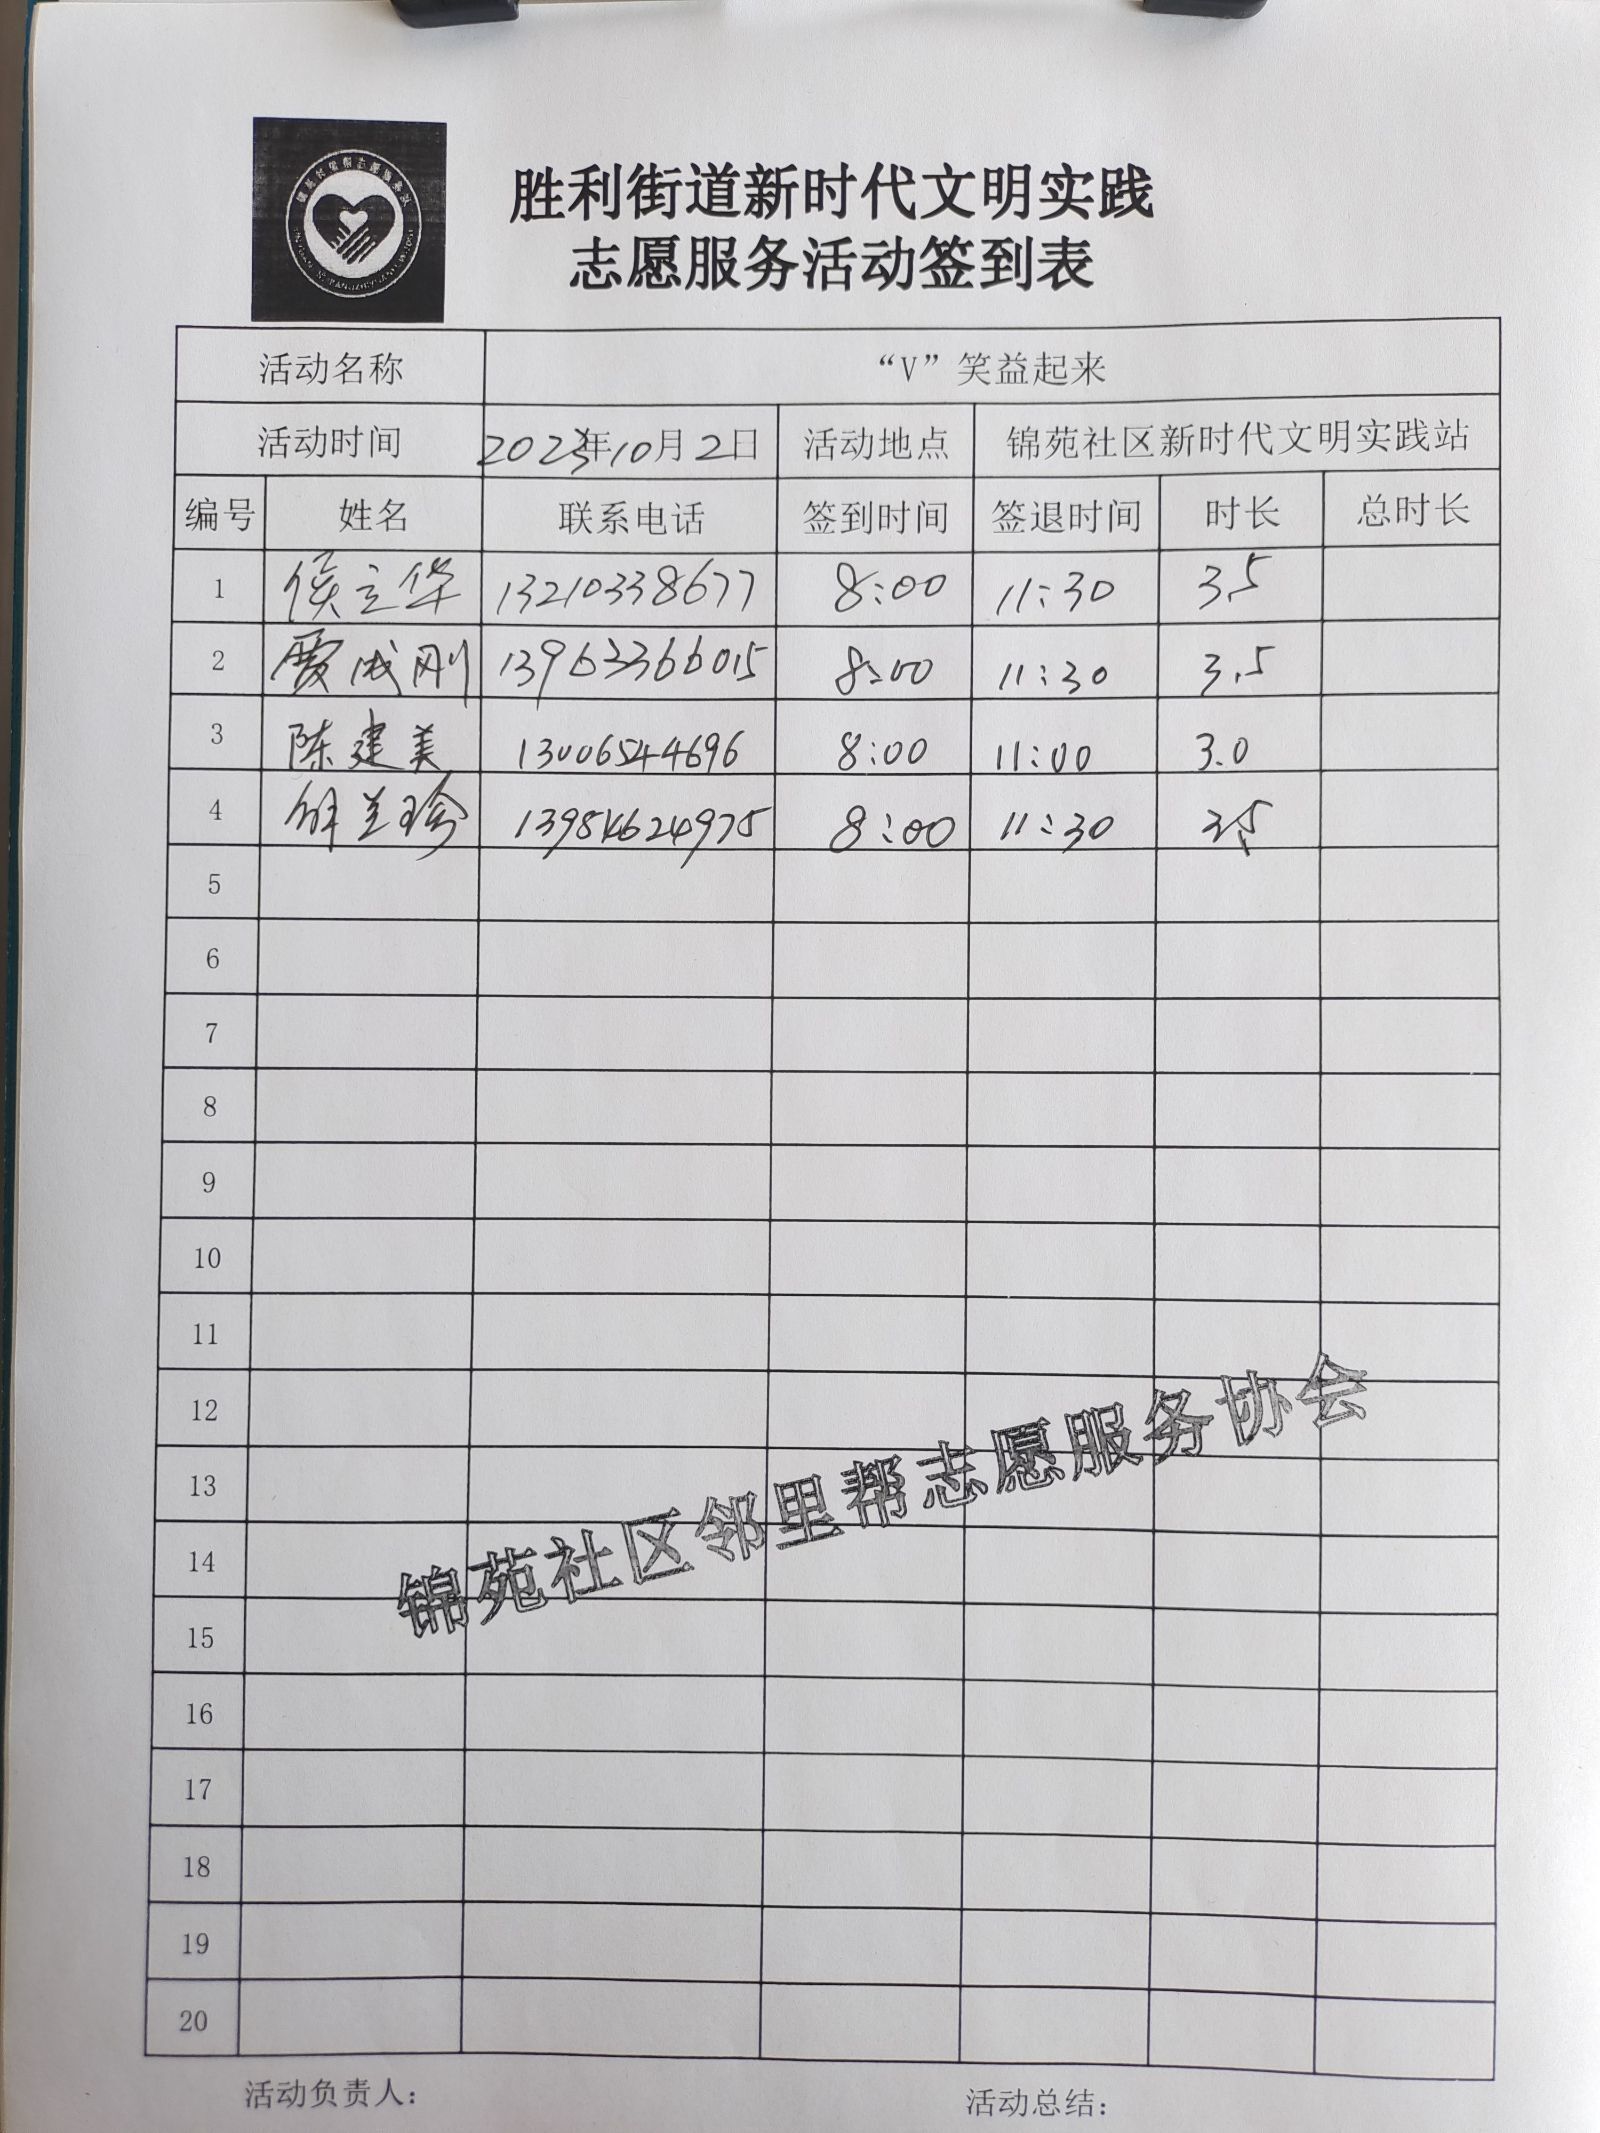 胜利街道新时代文明实践
志愿服务活动签到表
活动名称 “V”笑益起来
活动时间 2023年10月2日 活动地点 锦苑社区新时代文明实践站
编号 姓名 联系电话 签到时间 签退时间 时长 总时长
1 侯立华 13210338677 8:00 11:30 3.5
2 贾成刚 13963366015 8:00 11:30 3.5
3 陈建美 13006544696 8:00 11:00 3.0
4 13954624975 8:00 11:30 3.5
5
6
7
8
9
10
11
12
13
14
15
16
17
18
19
20
锦苑社区邻里帮志愿服务协会
活动负责人: 活动总结: